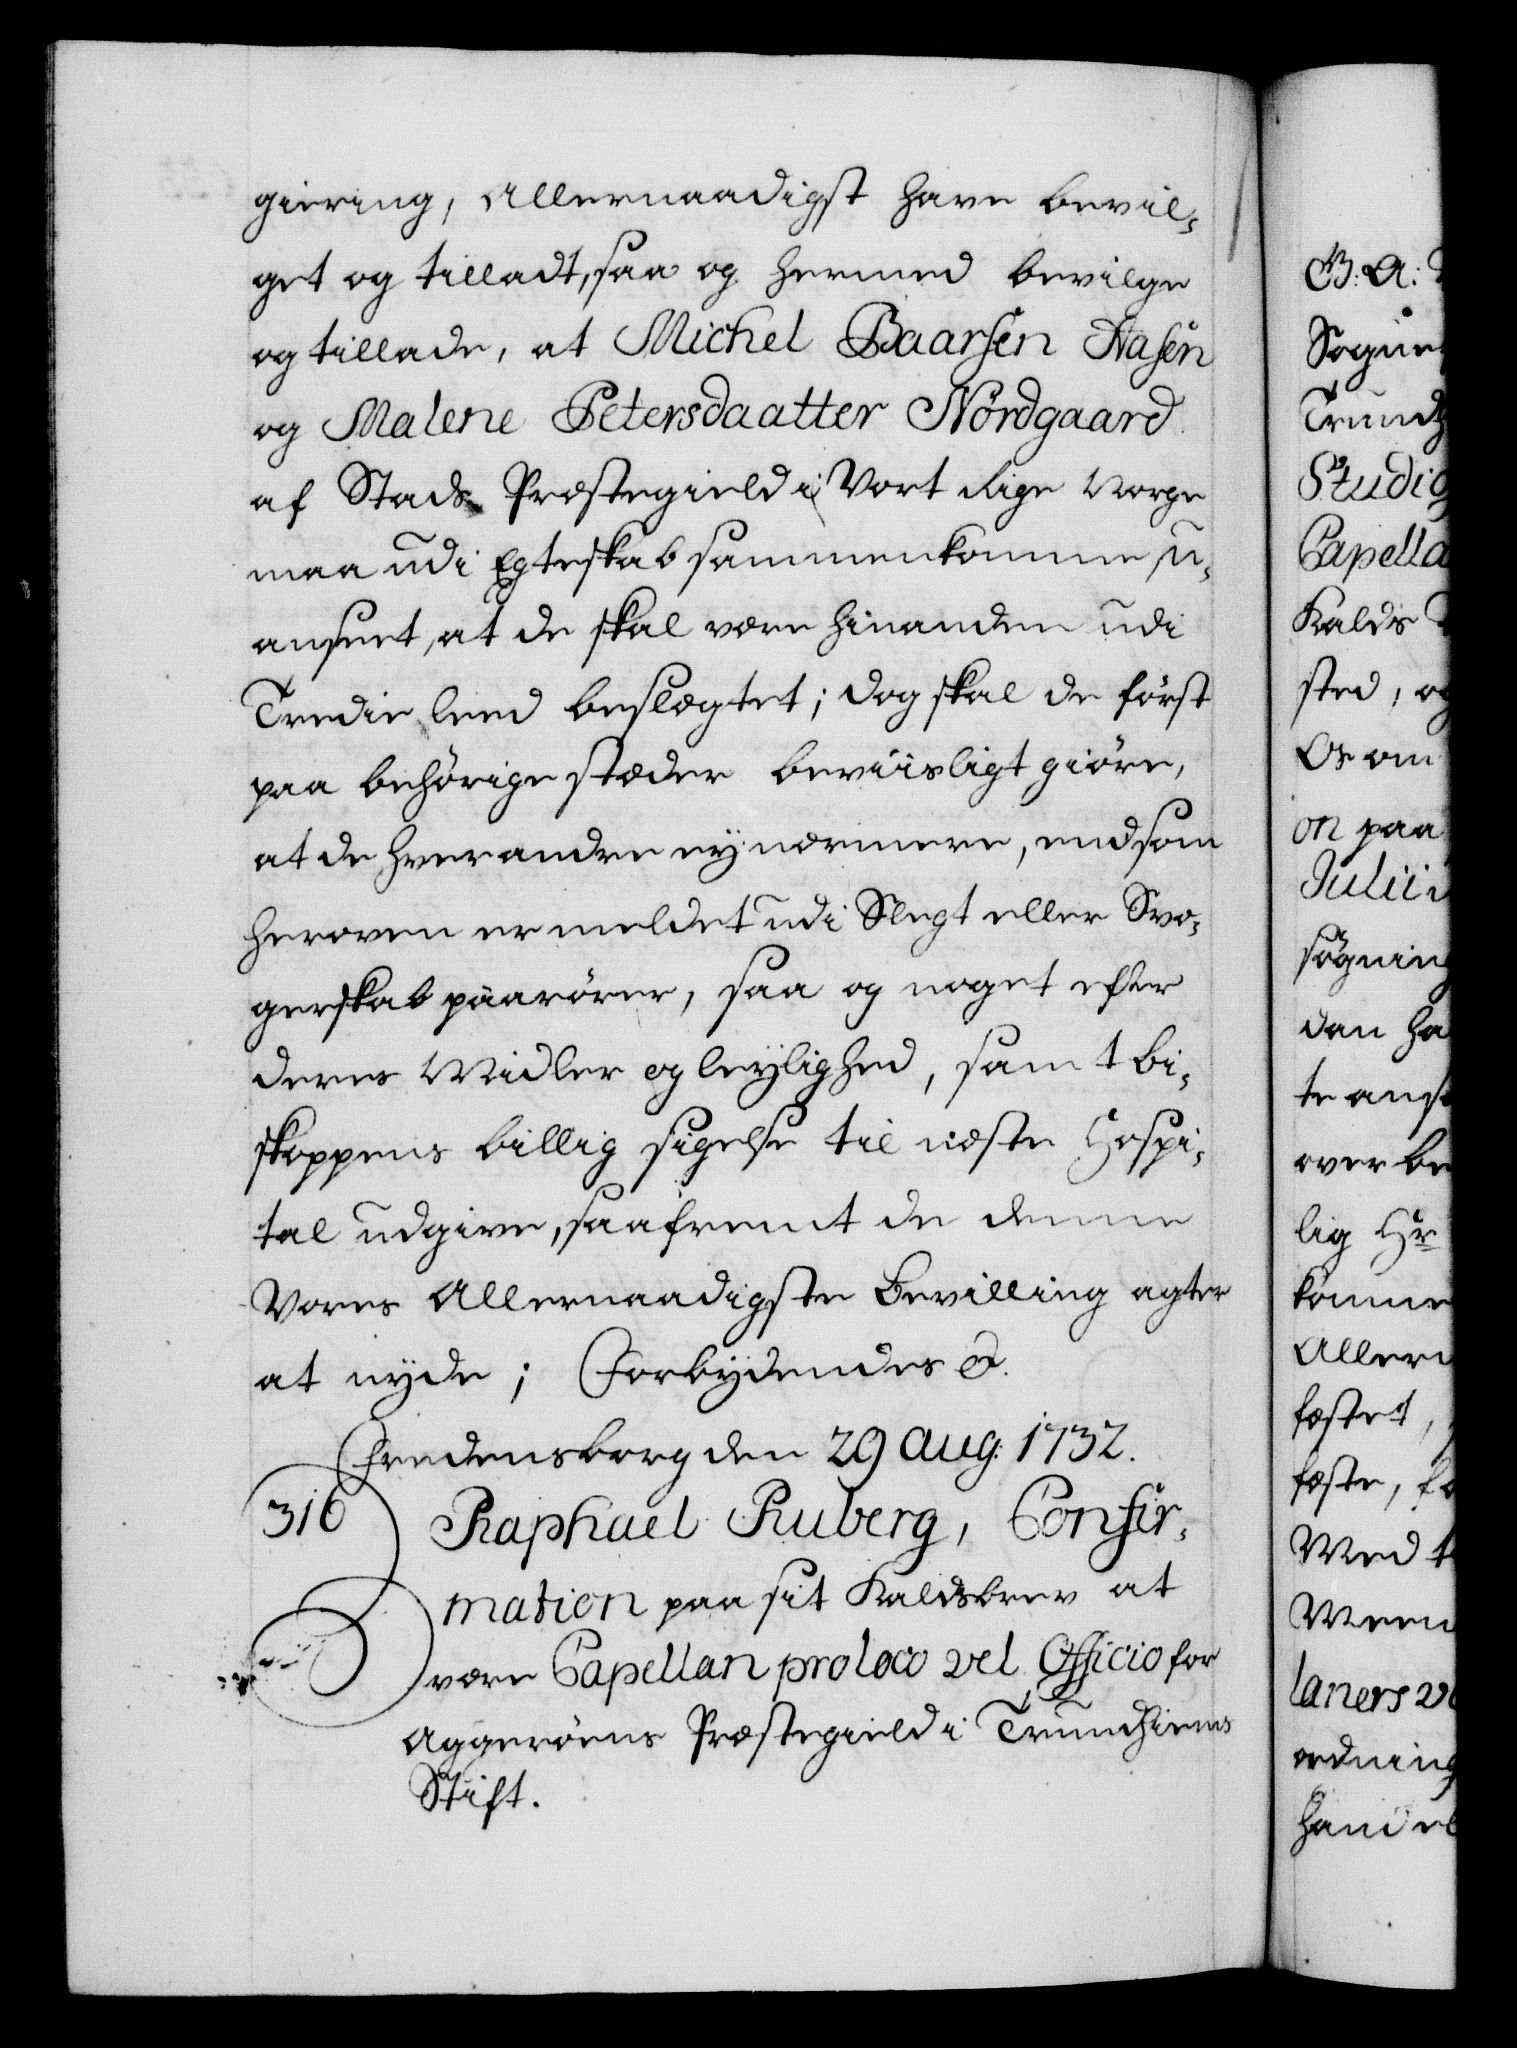 giering, Allernaadigst have bevil-
get og tilladt, saa og hermed bevilge
og tillade, at Michel Baarsen Aasen
og Malene Petersdaatter Nordgaard
af Stads Præstegield i Vort Rige Norge
maa udi Egteskab sammenkomme u-
anseet, at de skal være hinanden udi
Tredie leed beslægtet; dog skal de först
paa behörige stæder beviisligt giöre,
at de hverandre ey nærmere, end som
heroven ermeldet udi Slegt eller Svo-
gerskab paarörer, saa og noget efter
deres Midler og leylighed, samt Bi-
skoppens billig sigelse til næste Hospi-
tal udgive, saafremt de denne
Vores Allernaadigste Bevilling agter
at nyde; Forbydendes &.
Fredensborg den 29 Aug: 1732.
316
Raphael Ruberg, Confir-
mation paa sit Kaldsbrev at
være Capellan pro loco vel Officio for
Aggeröens Præstegield i Trundhiems
Stift.
G: A:
Sogne
Trundh
Studio
Capella
Kalds
sted, og
Os om
on paa
Julii
sögning
dan ha
te ansø
over be
lig Hr
komme
Allern
fæstet,
fæste,
Med
Meen
laners ve
ordning